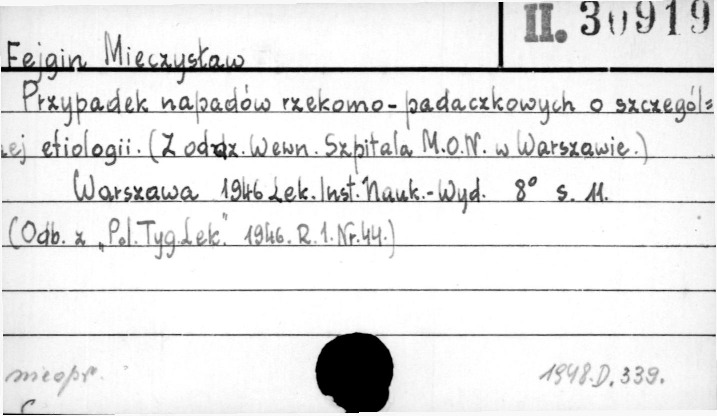 II. 30919
Fejgin Mieczysław
Przypadek napadów rzekomo-padaczkowych o szczegól=
nej etiologii. (Z oddz. Wewn. Szpitala M.O.N. w Warszawie.)
Warszawa 1946 Lek. Inst. Nauk.-Wyd. 8° s. 11.
(Odb. z „Pol. Tyg. Lek." 1946. R. 1. Nr. 44.)
nieopr.
1948.D. 339.